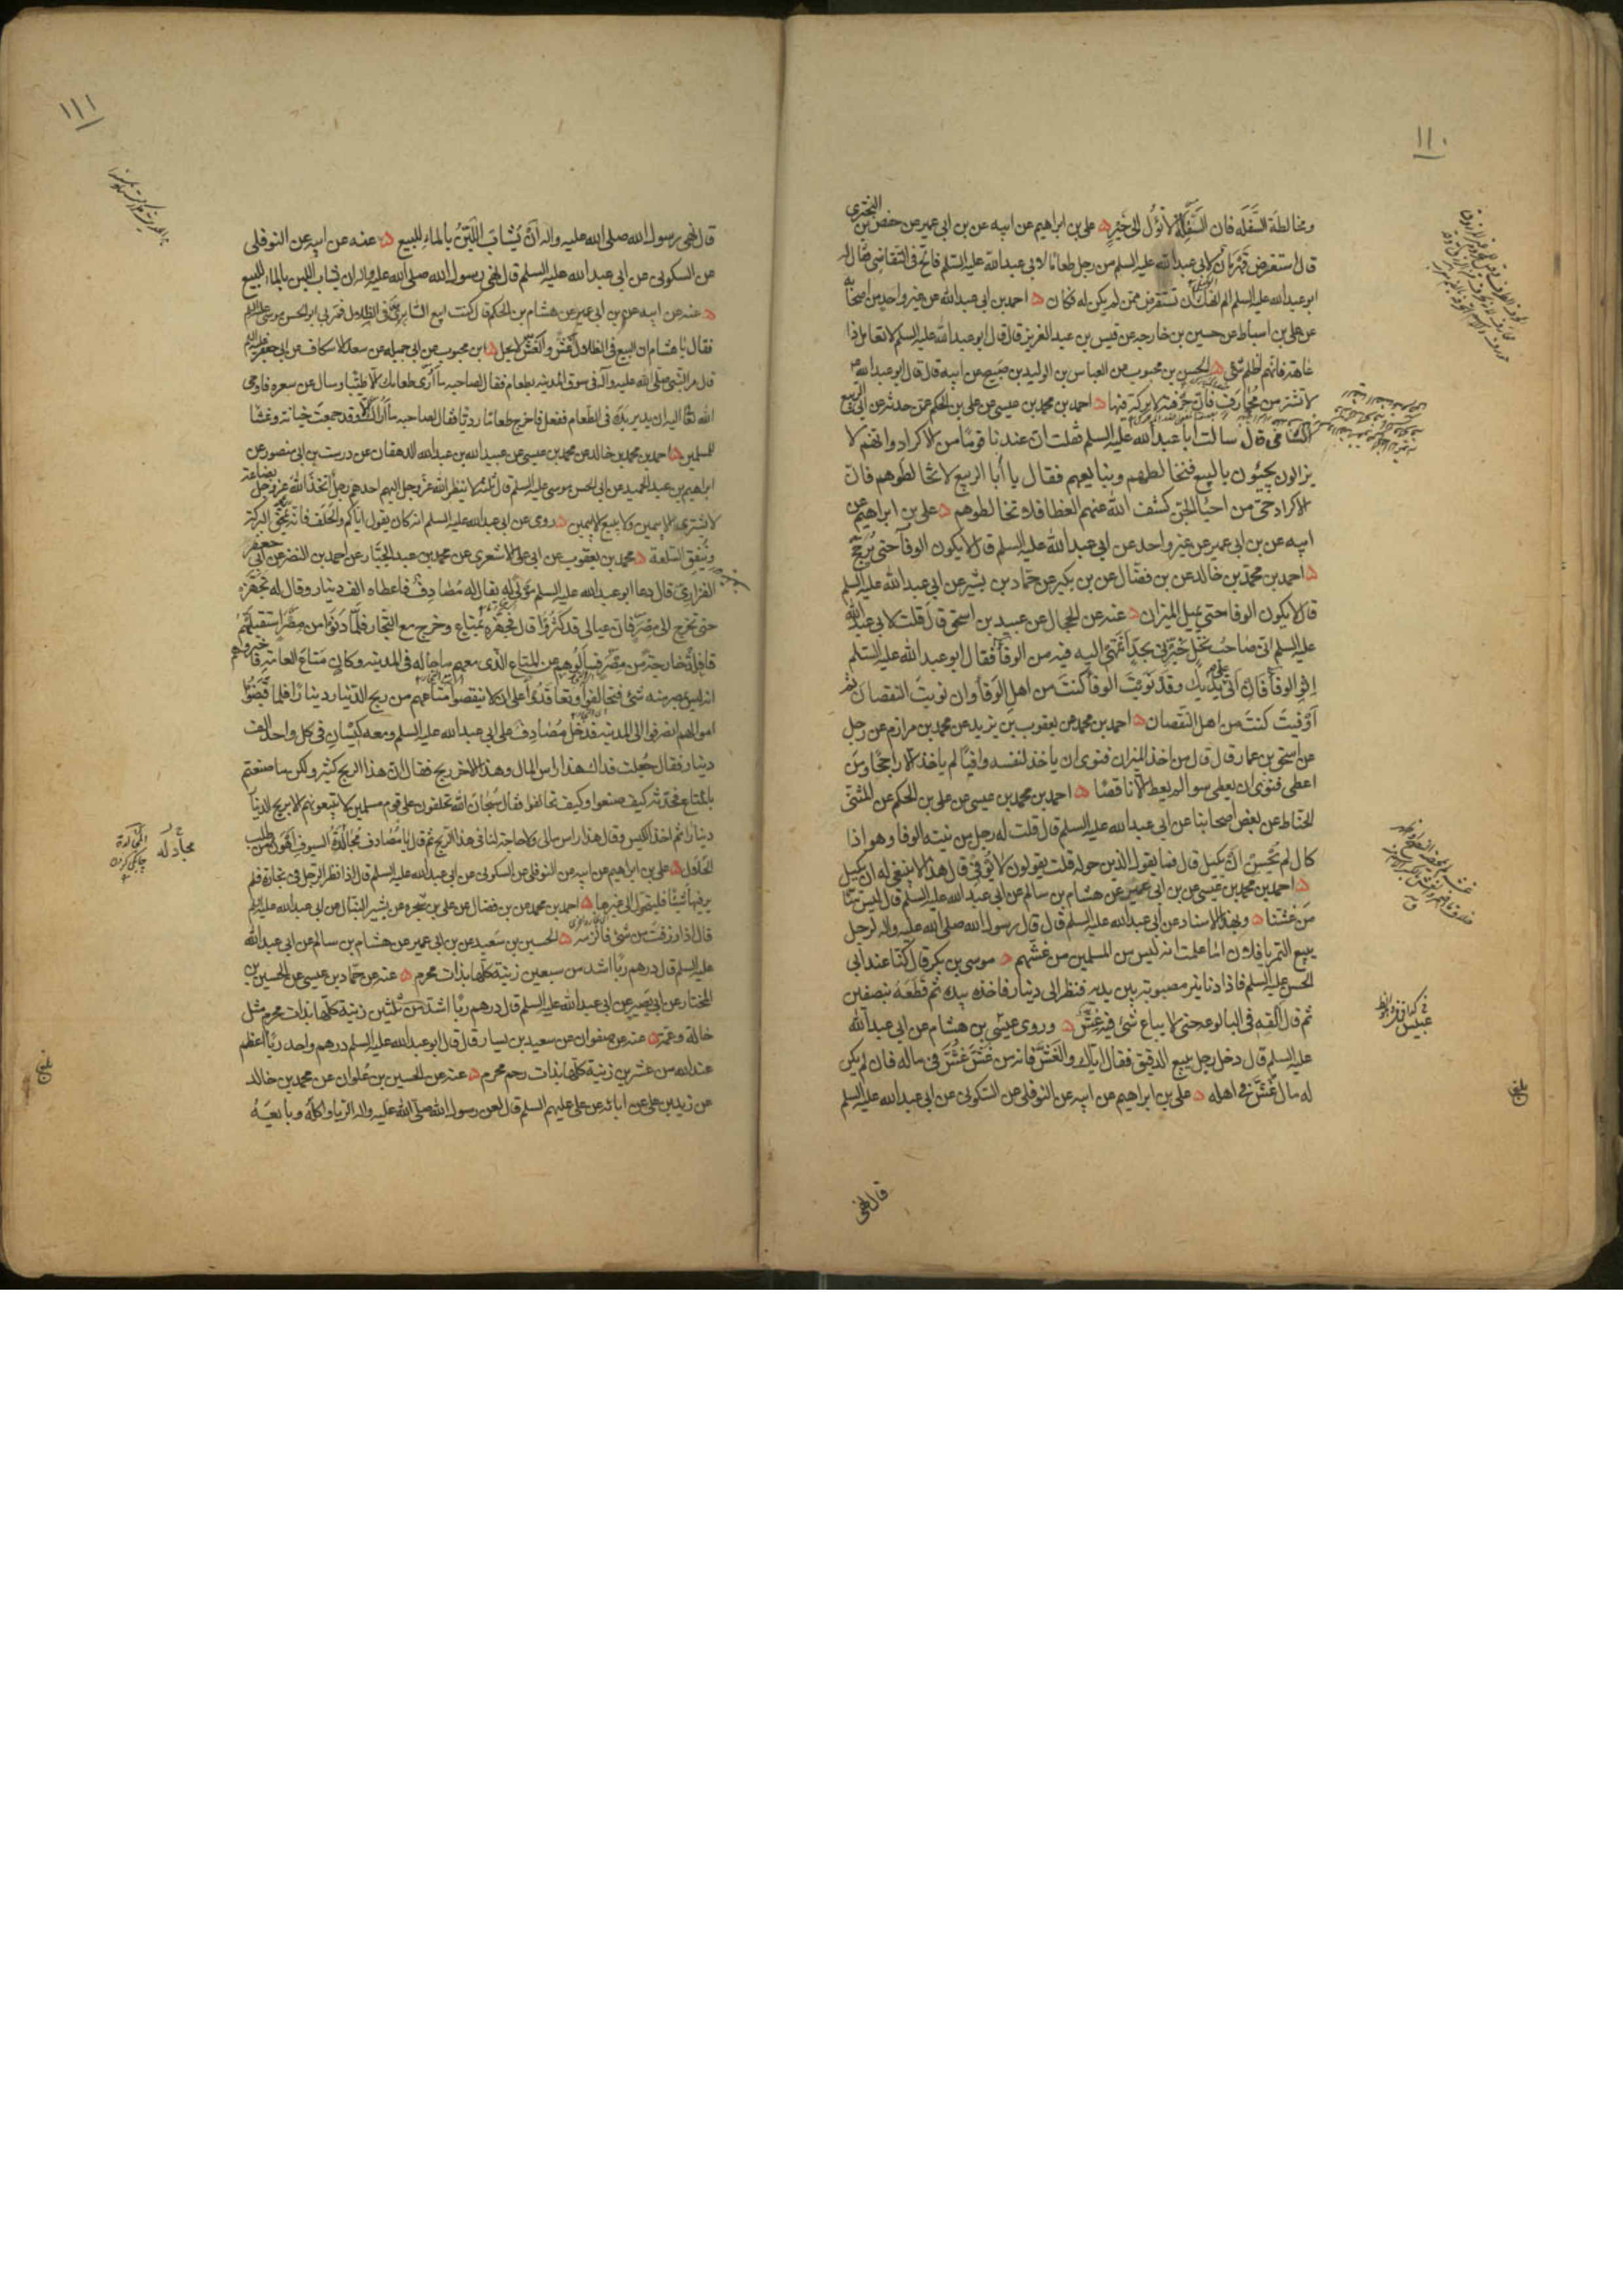 ١١٠
ومخالطة السفله فان السفلة لا تؤل الى خير ه على بن ابراهيم عن ابيه عن بن ابى عمير عن حفص بن البخترى
قال استقرض قهرمان لابى عبد الله عليه السلم من رجل طعاما لابى عبد الله عليه السلم فالح فى التقاضى فقال له
ابو عبد الله عليه السلم الم انهك ان تستقرض ممن لم يكن له فكان ه احمد بن ابى عبد الله عن غير واحد من اصحابه
عن على بن اسباط عن حسين بن خارجه عن قيس بن عبد العزيز قال قال ابو عبد الله عليه السلم لا تعامل ذا
عاهة فانهم اظلم شئ ه الحسن بن محبوب عن العباس بن الوليد بن صبيح عن ابيه قال قال ابو عبد الله
لا تشتر من محارف فان حرفته لا بركة فيها ه احمد بن محمد بن عيسى عن على بن الحكم عمن حدثه عن ابى الربيع
الشامى قال سالت ابا عبد الله عليه السلم فقلت ان عندنا قوما من الاكراد وانهم لا
يزالون يجيئون بالبيع فنخالطهم ونبايعهم فقال يا ابا الربيع لا تخالطوهم فان
الاكراد حى من احياء الجن كشف الله عنهم الغطا فلا تخالطوهم ه على بن ابراهيم عن
ابيه عن بن ابى عمير عن غير واحد عن ابى عبد الله عليه السلم قال لا يكون الوفآ حتى يرجح
ه احمد بن محمد بن خالد عن بن فضال عن بن بكير عن حماد بن بشير عن ابى عبد الله عليه السلم
قال لا يكون الوفا حتى يميل الميزان ه عنه عن الحجال عن عبيد بن اسحق قال قلت لابى عبد الله
عليه السلم انى صاحب نخل فخبرنى بحد انتهى اليه فيه من الوفآ فقال ابو عبد الله عليه السلم
انو الوفآ فان اتى على يديك وقد نويت الوفآ كنت من اهل الوفآ وان نويت النقصان ثم
اوفيت كنت من اهل النقصان ه احمد بن محمد عن يعقوب بن يزيد عن محمد بن مرازم عن رجل
عن اسحق بن عمار قال قال من اخذ الميزان فنوى ان ياخذ لنفسه وافيا لم ياخذ الا راجحا ومن
اعطى فنوى ان يعطى سوا لم يعط الا ناقصا ه احمد بن محمد بن عيسى عن على بن الحكم عن المثنى
الحناط عن بعض اصحابنا عن ابى عبد الله عليه السلم قال قلت له رجل من نيته الوفا وهو اذا
كال لم يحسن ان يكيل قال فما يقول الذين حوله قلت يقولون لا يوفى قال هذا لا ينبغى له ان يكيل
ه احمد بن محمد بن عيسى عن بن ابى عمير عن هشام بن سالم عن ابى عبد الله عليه السلم قال ليس منا
من غشنا ه وبهذا الاسناد عن ابى عبد الله عليه السلم قال قال رسول الله صلى الله عليه واله لرجل
يبيع التمر يا فلان اما علمت انه ليس من المسلمين من غشهم ه موسى بن بكر قال كنا عند ابى
الحسن عليه السلم فاذا دنانير مصبوبة بين يديه فنظر الى دينار فاخذه بيده ثم قطعه بنصفين
ثم قال القه فى البالوعه حتى لا يباع شئ فيه غش ه وروى عبيس بن هشام عن ابى عبد الله
عليه السلم قال دخل رجل يبيع الدقيق فقال اياك والغش فانه من غش غش فى ماله فان لم يكن
له مال غش فى اهله ه على بن ابراهيم عن ابيه عن النوفلى عن السكونى عن ابى عبد الله عليه السلم
قال نهى
بلغ
١١١
قال نهى رسول الله صلى الله عليه واله ان يشاب اللبن بالماء للبيع ه عنه عن ابيه عن النوفلى
عن السكونى عن ابى عبد الله عليه السلم قال نهى رسول الله صلى الله عليه واله ان يشاب اللبن بالماء للبيع
ه عنه عن ابيه عن بن ابى عمير عن هشام بن الحكم قال كنت ابيع السابرى فى الظلال فمر بى ابو الحسن موسى عليه السلم
فقال يا هشام ان البيع فى الظلال غش والغش لا يحل ه ابن محبوب عن ابى جميله عن سعد الاسكاف عن ابى جعفر عليه السلم
قال مر النبى صلى الله عليه واله فى سوق المدينه بطعام فقال لصاحبه ما ارى طعامك الا طيبا وسال عن سعره فاوحى
الله تعالى اليه ان يدير يده فى الطعام ففعل فاخرج طعاما رديا فقال لصاحبه ما اراك الا وقد جمعت خيانة وغشا
للمسلمين ه احمد بن محمد بن خالد عن محمد بن عيسى عن عبيد الله بن عبد الله الدهقان عن درست بن ابى منصور عن
ابراهيم بن عبد الحميد عن ابى الحسن موسى عليه السلم قال ثلثة لا ينظر الله عز وجل اليهم احدهم رجل اتخذ الله عز وجل بضاعة
لا يشترى الا بيمين ولا يبيع الا بيمين ه روى عن ابى عبد الله عليه السلم انه كان يقول اياكم والحلف فانه يمحق البركة
وينفق السلعة ه محمد بن يعقوب عن ابى على الاشعرى عن محمد بن عبد الجبار عن احمد بن النضر عن ابى جعفر
الفزارى قال دعا ابو عبد الله عليه السلم مولى له يقال له مصادف فاعطاه الف دينار وقال له تجهز
حتى تخرج الى مصر فان عيالى قد كثروا قال فجهزه بمتاع وخرج مع التجار فلما دنوا من مصر استقبلتهم
قافلة خارجة من مصر فسالوهم عن المتاع الذى معهم ما حاله فى المدينه وكان متاع العامة فاخبروهم
انه ليس بمصر منه شئ فتحالفوا وتعاقدوا على ان لا ينقصوا متاعهم من ربح الدينار دينارا فلما قبضوا
اموالهم انصرفوا الى المدينه فدخل مصادف على ابى عبد الله عليه السلم ومعه كيسان فى كل واحد الف
دينار فقال جعلت فداك هذا راس المال وهذا الاخر ربح فقال ان هذا الربح كثير ولكن ما صنعتم
بالمتاع فحدثه كيف صنعوا وكيف تحالفوا فقال سبحان الله تحلفون على قوم مسلمين الا تبيعونهم الا بربح الدينار
دينارا ثم اخذ الكيس وقال هذا راس مالى ولا حاجة لنا فى هذا الربح ثم قال يا مصادف مجالدة السيوف اهون من طلب
الحلال ه على بن ابراهيم عن ابيه عن النوفلى عن السكونى عن ابى عبد الله عليه السلم قال اذا نظر الرجل فى تجارة فلم
ير فيها شيئا فليتحول الى غيرها ه احمد بن محمد عن بن فضال عن على بن شجره عن بشير النبال عن ابى عبد الله عليه السلم
قال اذا رزقت من شئ فالزمه ه الحسين بن سعيد عن بن ابى عمير عن هشام بن سالم عن ابى عبد الله
عليه السلم قال درهم ربا اشد من سبعين زنية كلها بذات محرم ه عنه عن حماد بن عيسى عن الحسين بن
المختار عن ابى بصير عن ابى عبد الله عليه السلم قال درهم ربا اشد من ثلثين زنية كلها بذات محرم مثل
خالة وعمة ه عنه عن صفوان عن سعيد بن يسار قال قال ابو عبد الله عليه السلم درهم واحد ربا اعظم
عند الله من عشرين زنية كلها بذات رحم محرم ه عنه عن الحسين بن علوان عن محمد بن خالد
عن زيد بن على عن ابائه عن على عليهم السلم قال لعن رسول الله صلى الله عليه واله الربا واكله وبايعه
بلغ